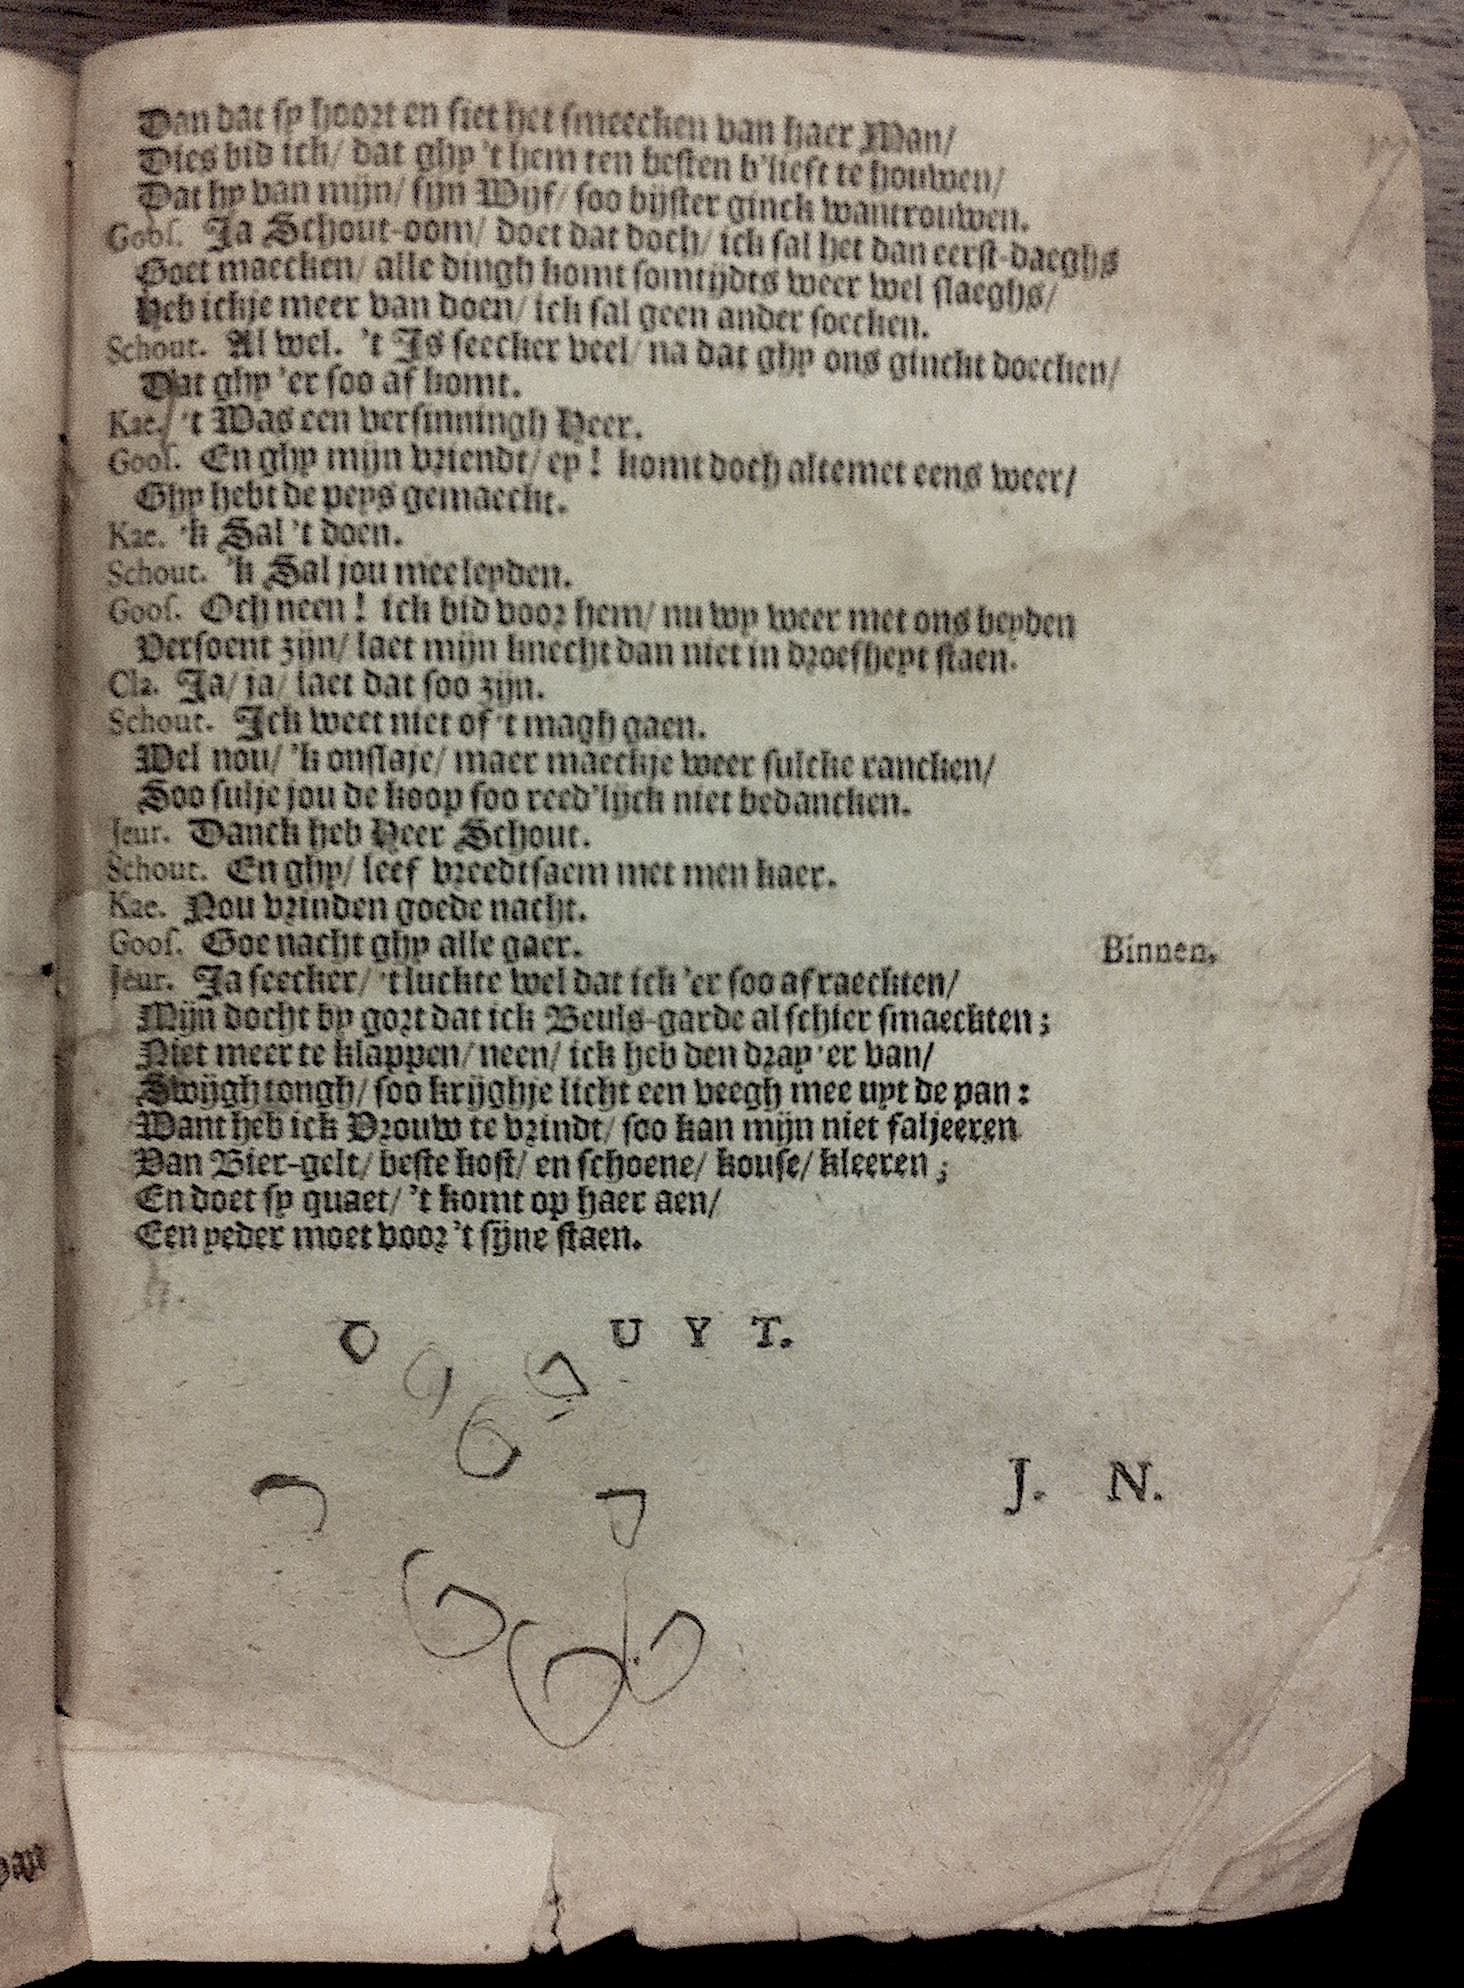 Dan dat sy hoort en siet het smeecken van haer Man/
Dies bid ick/ dat ghy 't hem ten besten b'lieft te houwen/
Dat hy van mijn/ sijn Wijf/ soo bijster ginck wantrouwen.
Gooſ. Ja Schout-oom/ doet dat doch/ ick sal het dan eerst-daeghs
Goet maecken/ alle dingh komt somtijdts weer wel slaeghs/
Heb ickje meer van doen/ ick sal geen ander soecken.
Schout. Al wel. 't Is seecker veel/ na dat ghy ons ginckt doecken/
Dat ghy 'er soo af komt.
Kae. 't Was een versinningh Heer.
Gooſ. En ghy mijn vriendt/ ey! komt doch altemet eens weer/
Ghy hebt de peys gemaeckt.
Kae. 'k Sal 't doen.
Schout. 'k Sal jou mee leyden.
Gooſ. Och neen! ick bid voor hem/ nu wy weer met ons beyden
Versoent zijn/ laet mijn knecht dan niet in droefheyt staen.
Cla. Ja/ ja/ laet dat soo zijn.
Schout. Ick weet niet of 't magh gaen.
Wel nou/ 'k onslaje/ maer maeckje weer sulcke rancken/
Soo sulje jou de koop soo reed'lijck niet bedancken.
Jeur. Danck heb Heer Schout.
Schout. En ghy/ leef vreedtsaem met men kaer.
Kae. Nou vrinden goede nacht.
Gooſ. Goe nacht ghy alle gaer. Binnen.
Jeur. Ja seecker/ 't luckte wel dat ick 'er soo af raeckten/
Mijn docht by gort dat ick Beuls-garde al schier smaeckten;
Niet meer te klappen/ neen/ ick heb den dray 'er van/
Swijgh tongh/ soo krijghje licht een veegh mee uyt de pan:
Want heb ick Vrouw te vrindt/ soo kan mijn niet faljeeren
Van Bier-gelt/ beste kost/ en schoene/ kouse/ kleeren;
En doet sy quaet/ 't komt op haer aen/
Een yeder moet voor 't sijne staen.
U Y T.
J. N.